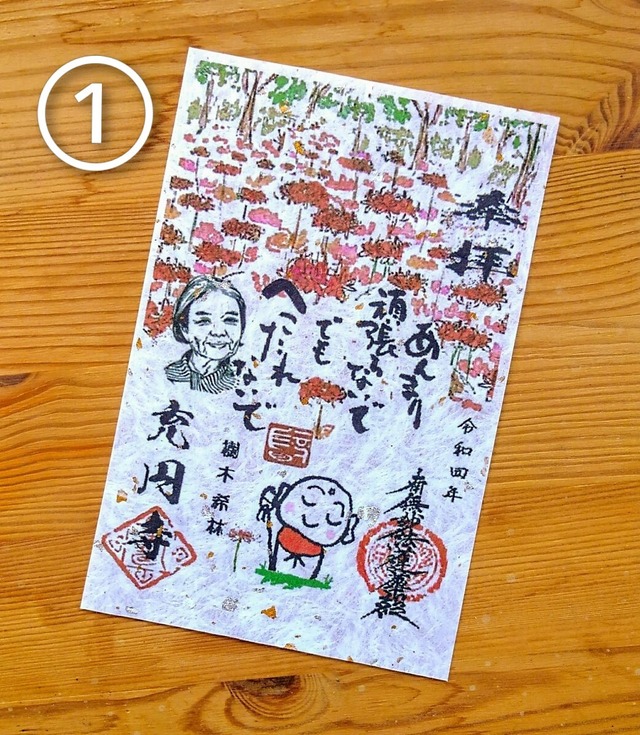 1
奉拝
あんまり
頑張らないで
でも
へこたれ
ないで
樹木希林
令和四年
充円寺